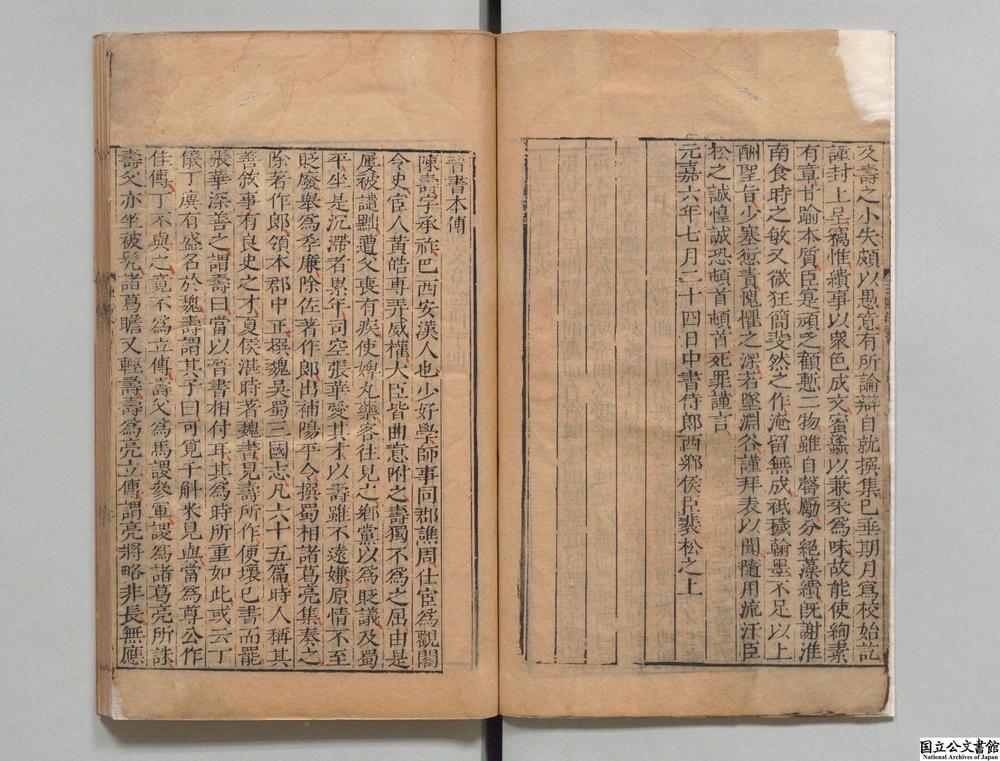 及壽之小失頗以愚意有所論辯自就撰集已垂期月寫校始訖
謹封上呈竊惟繢事以衆色成文蜜蠭以兼采爲味故能使絢素
有章甘踰本質臣寔頑乏顧慙二物雖自罄勵分絕藻繢旣謝淮
南食時之敏又微狂簡斐然之作淹留無成祗穢翰墨不足以上
酬聖旨少塞愆責愧懼之深若墜淵谷謹拜表以聞隨用流汗臣
松之誠惶誠恐頓首頓首死罪謹言
元嘉六年七月二十四日中書侍郎西鄉侯臣裴松之上
晉書本傳
陳壽字承祚巴西安漢人也少好學師事同郡譙周仕宦爲觀閣
令史宦人黃皓專弄威權大臣皆曲意附之壽獨不爲之屈由是
屢被譴黜遭父喪有疾使婢丸藥客往見之鄉黨以爲貶議及蜀
平坐是沉滯者累年司空張華愛其才以壽雖不遠嫌原情不至
貶廢舉爲孝廉除佐著作郎出補陽平令撰蜀相諸葛亮集奏之
除著作郎領本郡中正撰魏吳蜀三國志凡六十五篇時人稱其
善敘事有良史之才夏侯湛時著魏書見壽所作便壞已書而罷
張華深善之謂壽曰當以晉書相付耳其爲時所重如此或云丁
儀丁廙有盛名於魏壽謂其子曰可覓千斛米見與當爲尊公作
佳傳丁不與之竟不爲立傳壽父爲馬謖參軍謖爲諸葛亮所誅
壽父亦坐被髡諸葛瞻又輕壽壽爲亮立傳謂亮將略非長無應
国立公文書館
National Archives of Japan